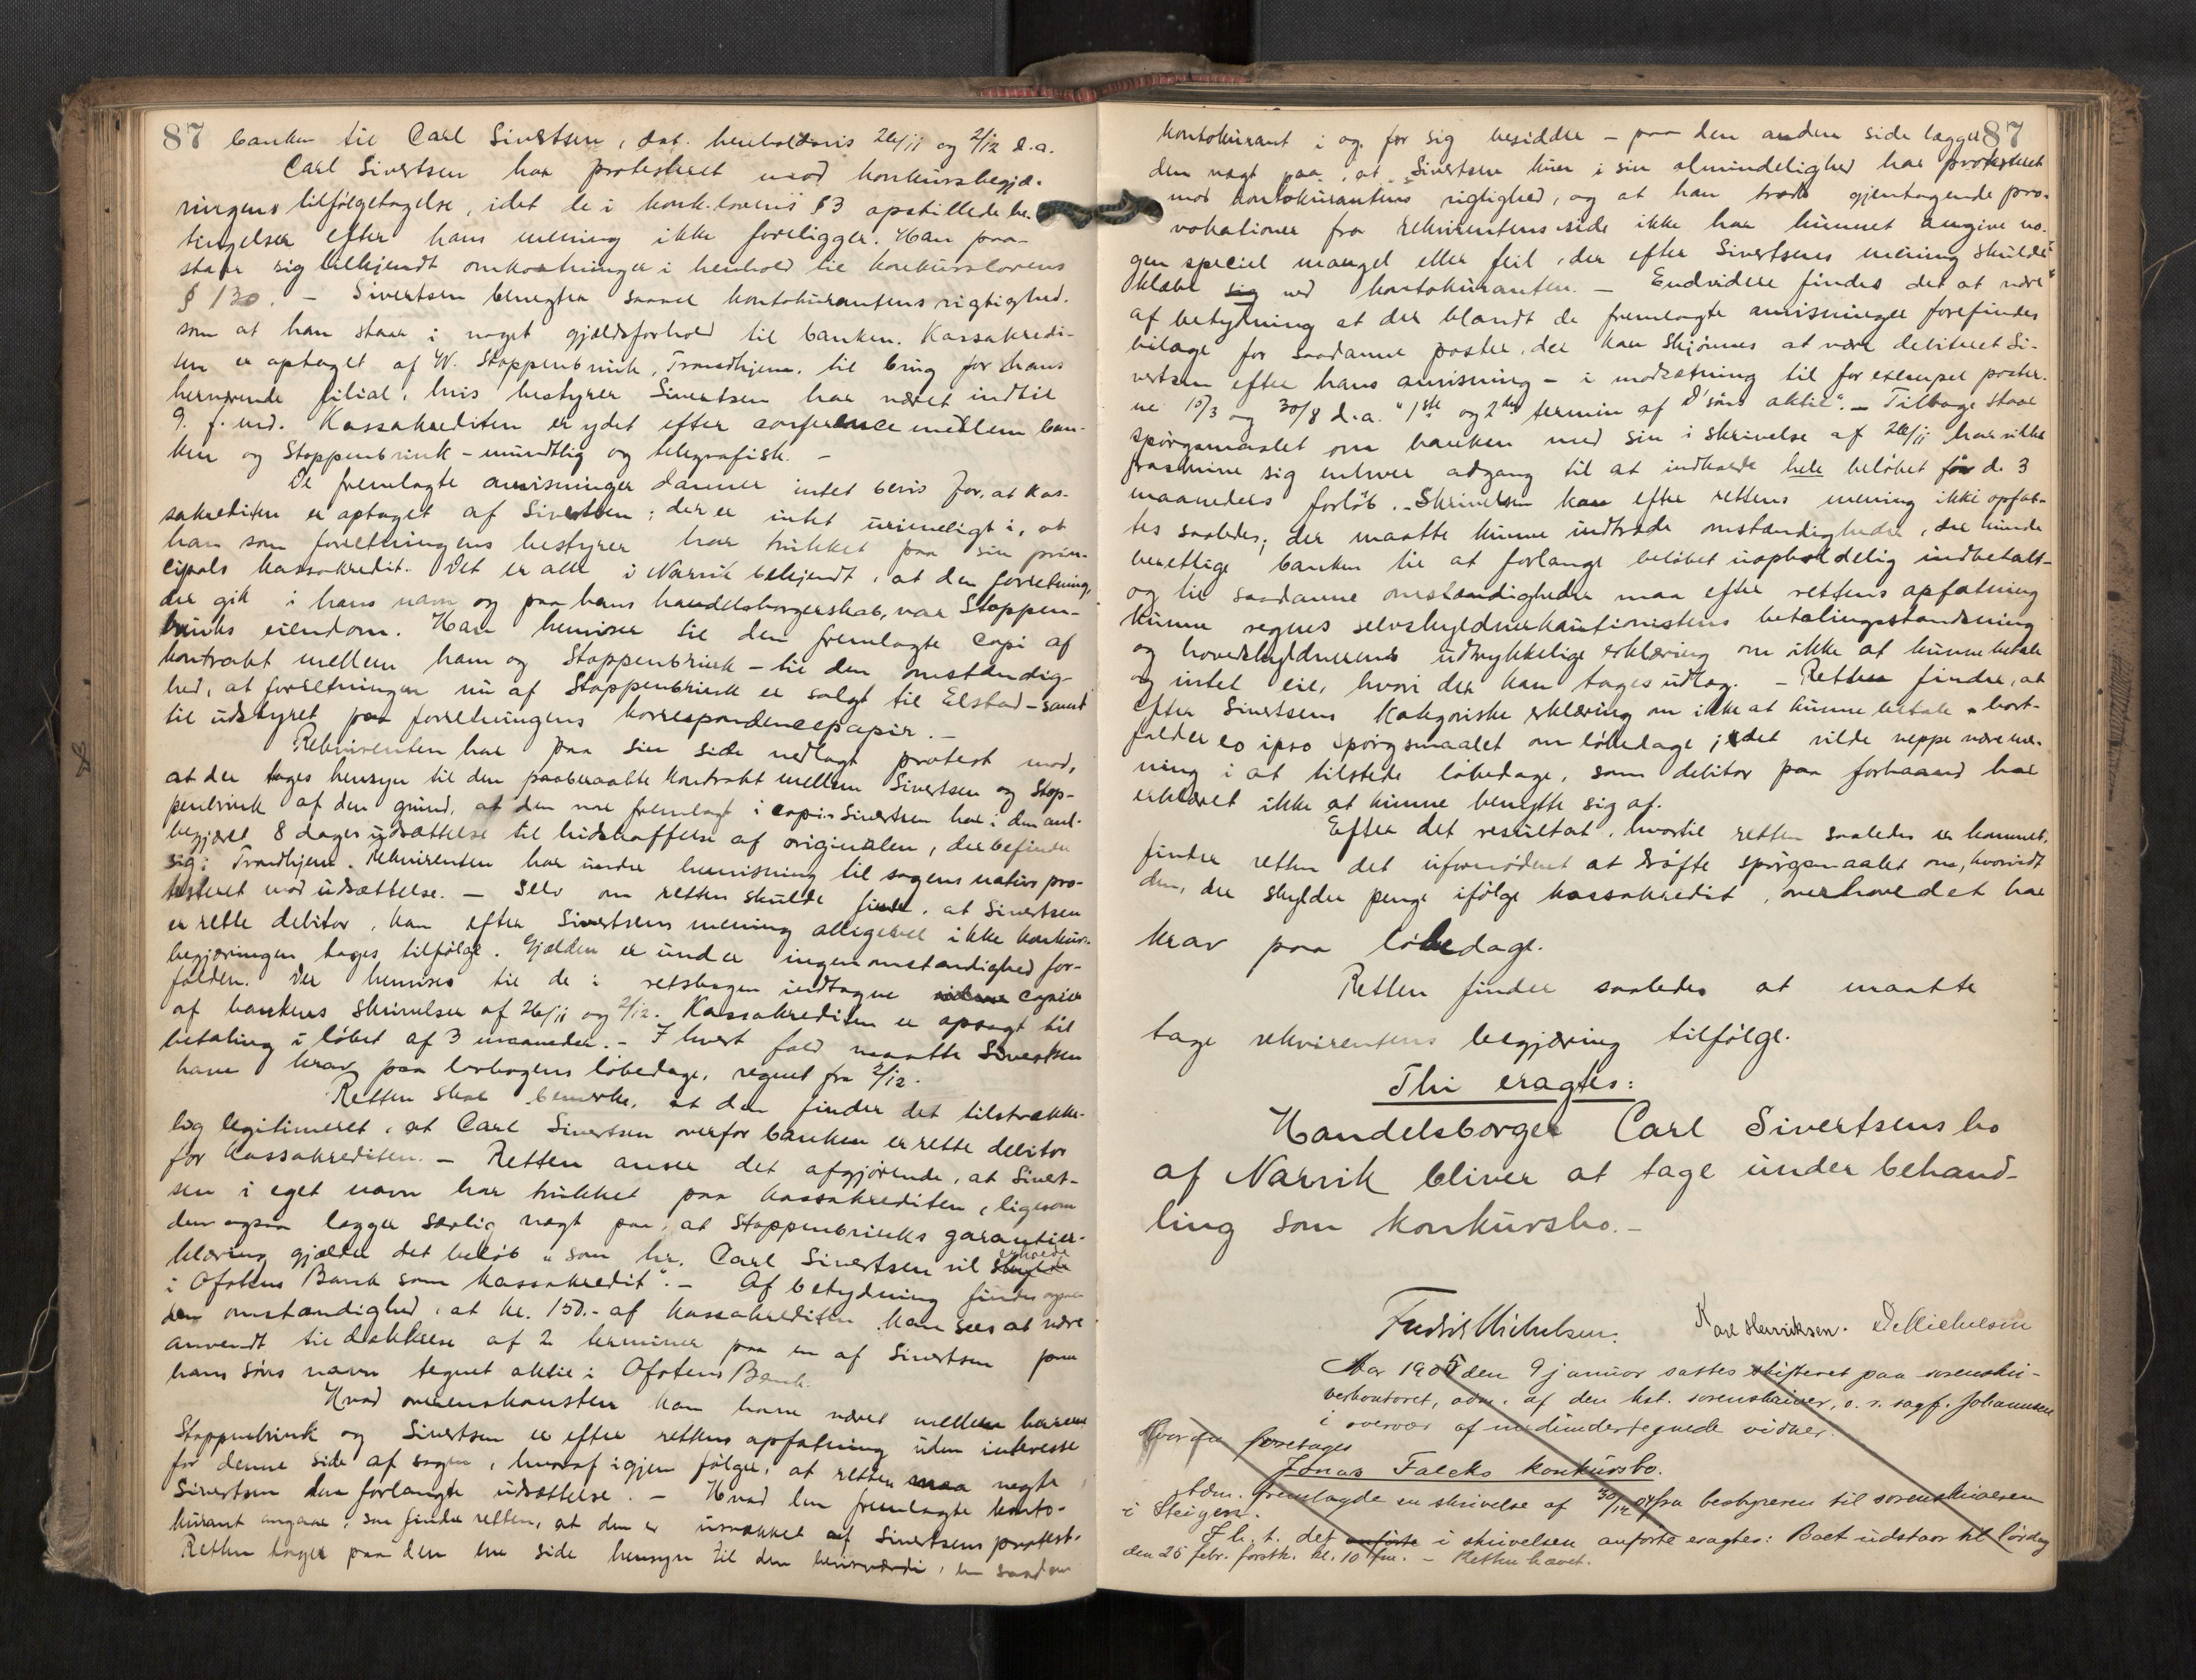 87
banken til Carl Sivertsen, dat. henholdsvis 26/11 og 2/12 d.a.
Carl Sivertsen har protesteret mod konkursbegjæ-
ringens tilfølgetagelse, idet de i konk.lovens § 3 opstillede be-
tingelser efter hans mening ikke foreligger. Han paa-
staar sig tilkjendt omkostninger i henhold til konkurslovens
§ 130. - Sivertsen benegter saavel kontokurantens rigtighed.
som at han staar i noget gjældsforhold til banken. Kassakredi-
ten er optaget af W. Stoppenbrink, Trondhjem, til brug for hans
herværende filial, hvis bestyrer Sivertsen har været indtil
9. f. md. Kassakrediten er ydet efter conference mellem ban-
ken og Stoppenbrink - mundtlig og telegrafisk. -
De fremlagte anvisninger danner intet bevis for, at kas-
sakrediten er optaget af Sivertsen; der er intet urimeligt i, at
han som forretningens bestyrer har trukket paa sin prin-
cipals kassakredit. Det er alle i Narvik bekjendt, at den forretning,
der gik i hans navn og paa hans handelsborgerskab, var Stoppen-
brinks eiendom. Han henviser til den fremlagte copi af
kontrakt mellem ham og Stoppenbrink - til den omstændig-
hed, at forretningen nu af Stoppenbrink er solgt til Elstad - samt
til udstyret paa forretningens korrespondencepapir. -
Rekvirenten har paa sin side nedlagt protest mod,
at der tages hensyn til den paaberaabte kontrakt mellem Sivertsen og Stop-
penbrink af den grund, at den var fremlagt i copi. Sivertsen har i den anl.
begjært 8 dages udsættelse til tidskaffelse af originalen, der befinder
sig i Trondhjem. Rekvirenten har under henvisning til sagens natur pro-
testeret mod udsættelse. - Selv om retten skulde finde, at Sivertsen
er rette debitor, kan efter Sivertsens mening alligevel ikke konkurs-
begjæringen tages tilfølge. Gjælden er under ingen omstændighed for-
falden. Der henvises til de i retsbogen indtagne copier
af bankens skrivelser af 26/11 og 2/12. Kassakrediten er opsagt til
betaling i løbet af 3 maaneder. - I hvert fald maatte Sivertsen
have krav paa lovbogens løbedage, regnet fra 2/12.
Retten skal bemerke, at den finder det tilstrække-
lig legitimeret, at Carl Sivertsen overfor banken er rette debitor
for kassakrediten. - Retten anser det afgjørende, at Sivert-
sen i eget navn har trukket paa kassakrediten, ligesom
den ogsaa lægger særlig vægt paa, at Stoppenbrinks garantier-
klæring gjælder det beløb "som hr. Carl Sivertsen vil skylde erholde
i Ofotens Bank som kassakredit". - Af betydning findes ogsaa
den omstændighed, at kr. 150.- af kassakrediten kan sees at være
anvendt til dækkelse af 2 terminer paa en af Sivertsen paa
hans søns navn tegnet aktie i Ofotens Bank.
Hvad overenskomsten kan have været mellem
Stoppenbrink og Sivertsen er efter rettens opfatning uden interesse
for denne side af sagen, hvoraf igjen følger, at retten maa negte
Sivertsen den forlangte udsættelse. - Hvad den fremlagte konto-
kurant angaar, saa finder retten, at den er usvækket af Sivertsens protest.
Retten tager paa den ene side hensyn til den beviskraft, en saadan
87
kontokurant i og for sig besidder - paa den anden side lægger
den vægt paa, at Sivertsen kun i sin almindelighed har protesteret
mod kontokurantens rigtighed, og at han trods gjentagende pro-
vokationer fra rekvirentens side ikke har kunnet angive no-
gen speciel mangel eller feil, der efter Sivertsens mening skulde
klæbe sig ved kontokuranten. - Endvidere findes det at være
af betydning at der blandt de fremlagte anvisninger forefindes
bilage for saadanne poster, der kan skjønnes at være debiteret Si-
vertsen efter hans anvisning - i modsætning til for exempel poster-
ne 15/3 og 30/8 d.a. "1ste og 2den termin af D's søns aktie". - Tilbage staar
spørgsmaalet om banken med sin i skrivelse af 26/11 har villet
fraskrive sig enhver adgang til at indkræve hele beløbet før de 3
maaneders forløb. - Skrivelsen kan efter rettens mening ikke opfat-
tes saaledes; der maatte kunne indtræde omstændigheder, der kunde
berettige banken til at forlange beløbet uopholdelig indbetalt -
og til saadanne omstændigheder maa efter rettens opfatning
kunne regnes selvskyldnerkautionistens betalingsstandsning
og hovedskyldnerens udtrykkelige erklæring om ikke at kunne betale
og intet eie, hvori der kan tages udlæg. - Retten finder, at
efter Sivertsens kategoriske erklæring om ikke at kunne betale bort-
falder eo ipso spørgsmaalet om løbedage; idet vilde neppe være me-
ning i at tilstede løbedage, som debitor paa forhaand har
erklæret ikke at kunne benytte sig af.
Efter det resultat, hvortil retten saaledes er kommet,
finder retten det ufornødent at drøfte spørgsmaalet om, hvorvidt
den, der skylder penge ifølge kassakredit, overhovedet har
krav paa løbedage.
Retten finder saaledes at maatte
tage rekvirentens begjæring tilfølge.
Thi eragtes:
Handelsborger Carl Sivertsens bo
af Narvik bliver at tage under behand-
ling som konkursbo. -
Fredrik Michelsen. Karl Henriksen. D Michelsen
Aar 1905 den 9 januar sattes skifteret paa sorenskri-
verkontoret, adm. af den kst. sorenskriver, o. r. sagf. Johannesen
i overvær af medundertegnede vidner.
Hvorda foretages
Jonas Falcks konkursbo.
Adm. fremlagde en skrivelse af 30/12 04 fra bestyreren til sorenskriveren
i Steigen.
I h. t. det anførte i skrivelsen anførte eragtes: Boet udstaar til lørdag
den 25 febr. førstk. kl. 10 fm. - Retten hævet.